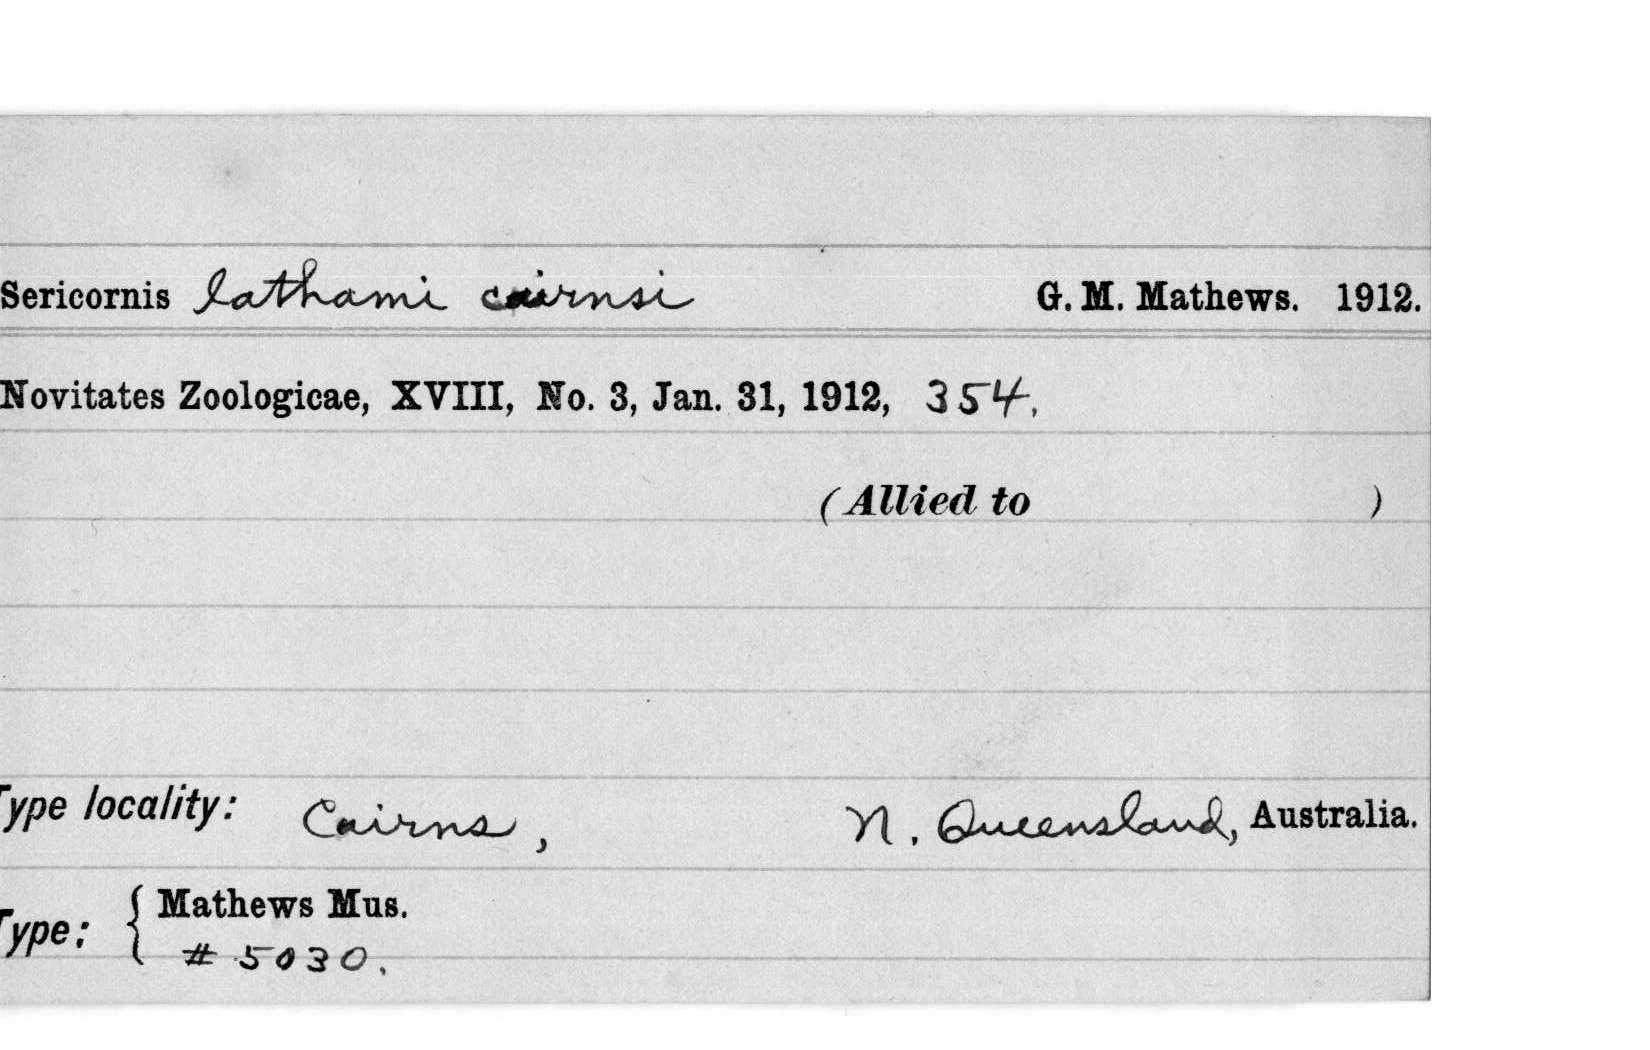 Sericornis lathami cairnsi G. M. Mathews. 1912.
Novitates Zoologicae, XVIII, No. 3, Jan. 31, 1912, 354.
(Allied to )
Type locality: Cairns, N. Queensland, Australia.
Type: { Mathews Mus.
# 5030.